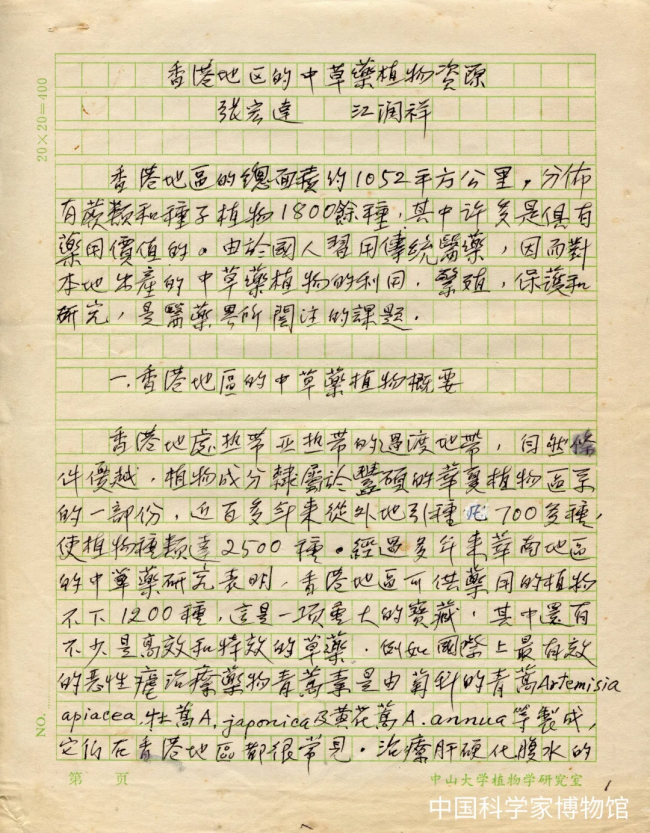 20×20=400
香港地区的中草藥植物资源
张宏達 江润祥
香港地區的總面積約1052平方公里，分佈
有蕨類和種子植物1800餘種，其中许多是俱有
藥用價值的。由於國人習用傳統醫藥，因而對
本地出產的中草藥植物的利用、繁殖，保護和
研究，是醫藥界所関注的課題。
一.香港地區的中草藥植物概要
香港地處热带亚热带的過渡地帶，自然條
件優越，植物成分隸屬於豐碩的華夏植物區系
的一部份，近百多年来從外地引種 700多種，
使植物種類達2500種。經過多年来華南地區
的中草藥研究表明，香港地區可供藥用的植物
不下1200種，這是一项重大的寶藏，其中還有
不少是高效和特效的草藥。例如國際上最有效
的恶性瘧治療藥物青蒿素是由菊科的青蒿Artemisia
apiacea，牡蒿A. japonica及黄花蒿A. annua等製成，
它们在香港地區都很常見。治療肝硬化腹水的
NO.
第 页
中山大学植物学研究室
1
中国科学家博物馆